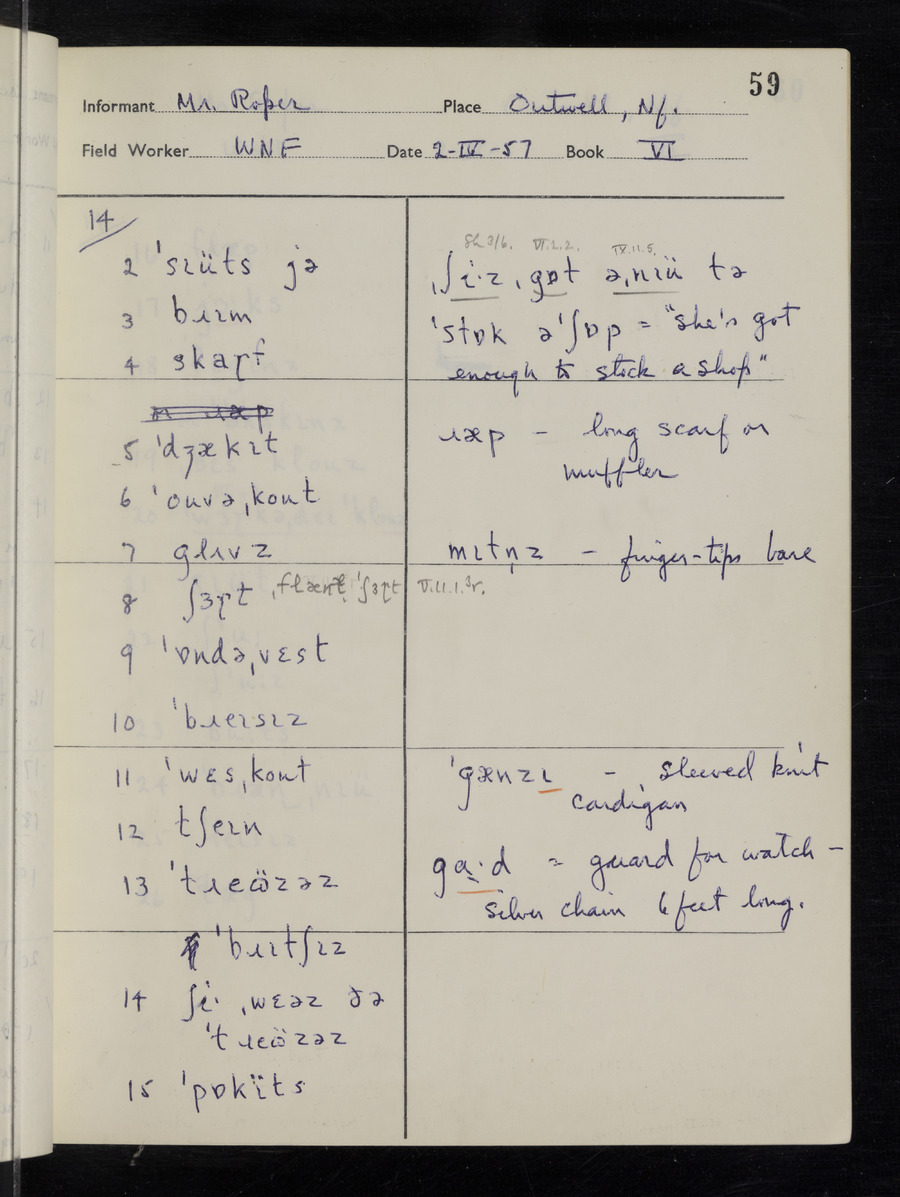 59
Informant Mr. Roper Place Outwell, Nf.
Field Worker WNF Date 2-IV-57 Book VI
14/
2 ˈsɪüts jə
3 bɹɪm
4 skaɽf
5 ˈdʒækɪt
6 ˈouvəˌkout
7 glɪvz
8 ʃɜɽt V.11.1.3r.
9 ˈɒndəˌvɛst
10 ˈbɹeɪsɪz
11 ˈwɛsˌkout
12 tʃeɪn
13 ˈtɹeözəz
ˈbɹɪtʃɪz
14 ʃi· ˌwɛəz ðə
ˈtɹeözəz
15 ˈpɒkïts
Sh 3/6. VI.2.2. IX.11.5.
ˌʃi·z ˌgɒt əˌnɪü tə
ˈstɒk əˈʃɒp = "she's got
enough to stock a shop"
ɹæp – long scarf or
muffler
mɪtn̩z – finger-tips bare
ˈgænzɪ – sleeved knit
cardigan
gɑ·d = guard for watch –
silver chain 6 feet long.